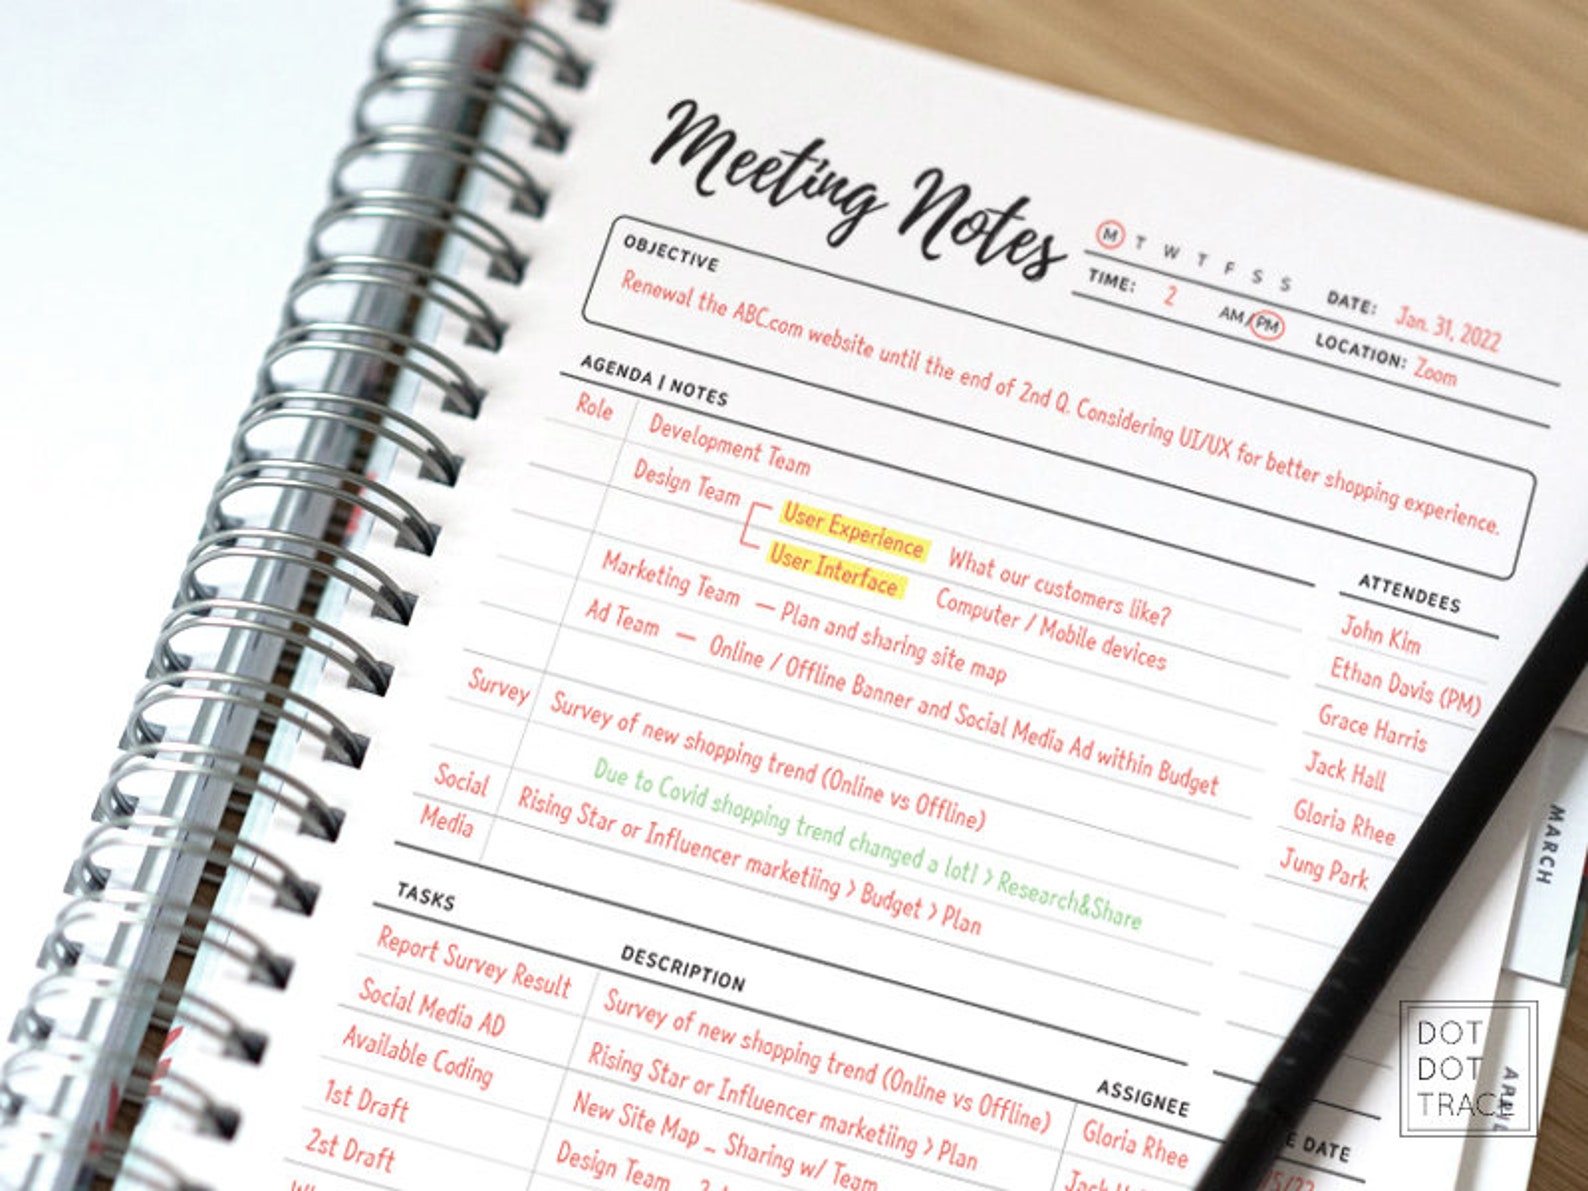 Meeting Notes
M T W T F S S DATE: Jan. 31, 2022
TIME: 2 AM/PM LOCATION: Zoom
OBJECTIVE
Renewal the ABC.com website until the end of 2nd Q. Considering UI/UX for better shopping experience.
AGENDA | NOTES
Role Development Team
Design Team User Experience What our customers like?
User Interface Computer / Mobile devices
Marketing Team — Plan and sharing site map
Ad Team — Online / Offline Banner and Social Media Ad within Budget
Survey Survey of new shopping trend (Online vs Offline)
Due to Covid shopping trend changed a lot! > Research&Share
Social Rising Star or Influencer marketiing > Budget > Plan
Media
ATTENDEES
John Kim
Ethan Davis (PM)
Grace Harris
Jack Hall
Gloria Rhee
Jung Park
TASKS DESCRIPTION ASSIGNEE DATE
Report Survey Result Survey of new shopping trend (Online vs Offline) Gloria Rhee
Social Media AD Rising Star or Influencer marketiing > Plan Jack
Available Coding New Site Map _ Sharing w/ Team
1st Draft Design Team
2st Draft
MARCH
APRIL
DOT
DOT
TRACE